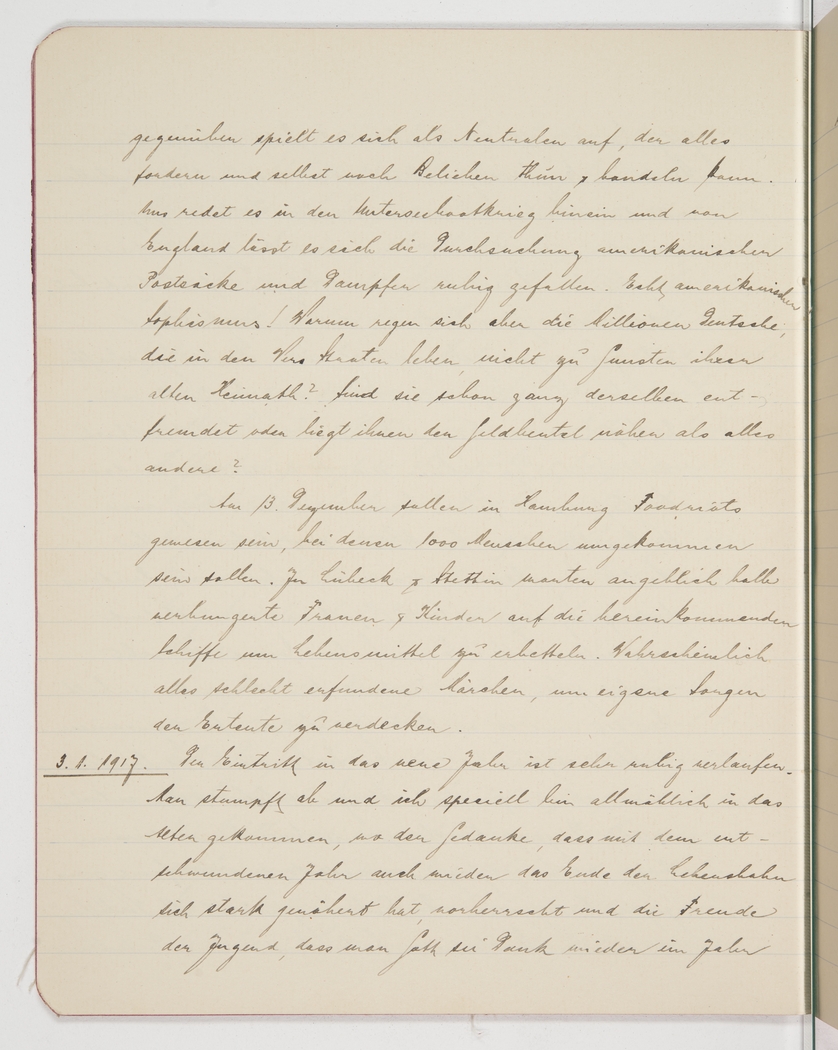 gegenüber spielt es sich als Neutralen auf, der alles
fordern und selbst nach Belieben thun & handeln kann.
Uns redet es in den Unterseebootkrieg hinein und von
England lässt es sich die Durchsuchung amerikanischer
Postsäcke und Dampfer ruhig gefallen. Echt amerikanischer
Sophismus! Warum regen sich aber die Millionen Deutsche,
die in den Ver. Staaten leben, nicht zu Gunsten ihrer
alten Heimath? Sind sie schon ganz derselben ent-
fremdet oder liegt ihnen der Geldbeutel näher als alles
andere?
Am 13. Dezember sollen in Hamburg Foodriots
gewesen sein, bei denen 1000 Menschen umgekommen
sein sollen. In Lübeck & Stettin warten angeblich halb
verhungerte Frauen & Kinder auf die hereinkommenden
Schiffe um Lebensmittel zu erbetteln. Wahrscheinlich
alles schlecht erfundene Märchen, um eigene Sorgen
der Entente zu verdecken.
3. 1. 1917. Der Eintritt in das neue Jahr ist sehr ruhig verlaufen.
Man stumpft ab und ich speciell bin allmählich in das
Alter gekommen, wo der Gedanke, dass mit dem ent-
schwundenen Jahr auch wieder das Ende der Lebensbahn
sich stark genähert hat, vorherrscht und die Freude
der Jugend, dass man Gott sei Dank wieder ein Jahr